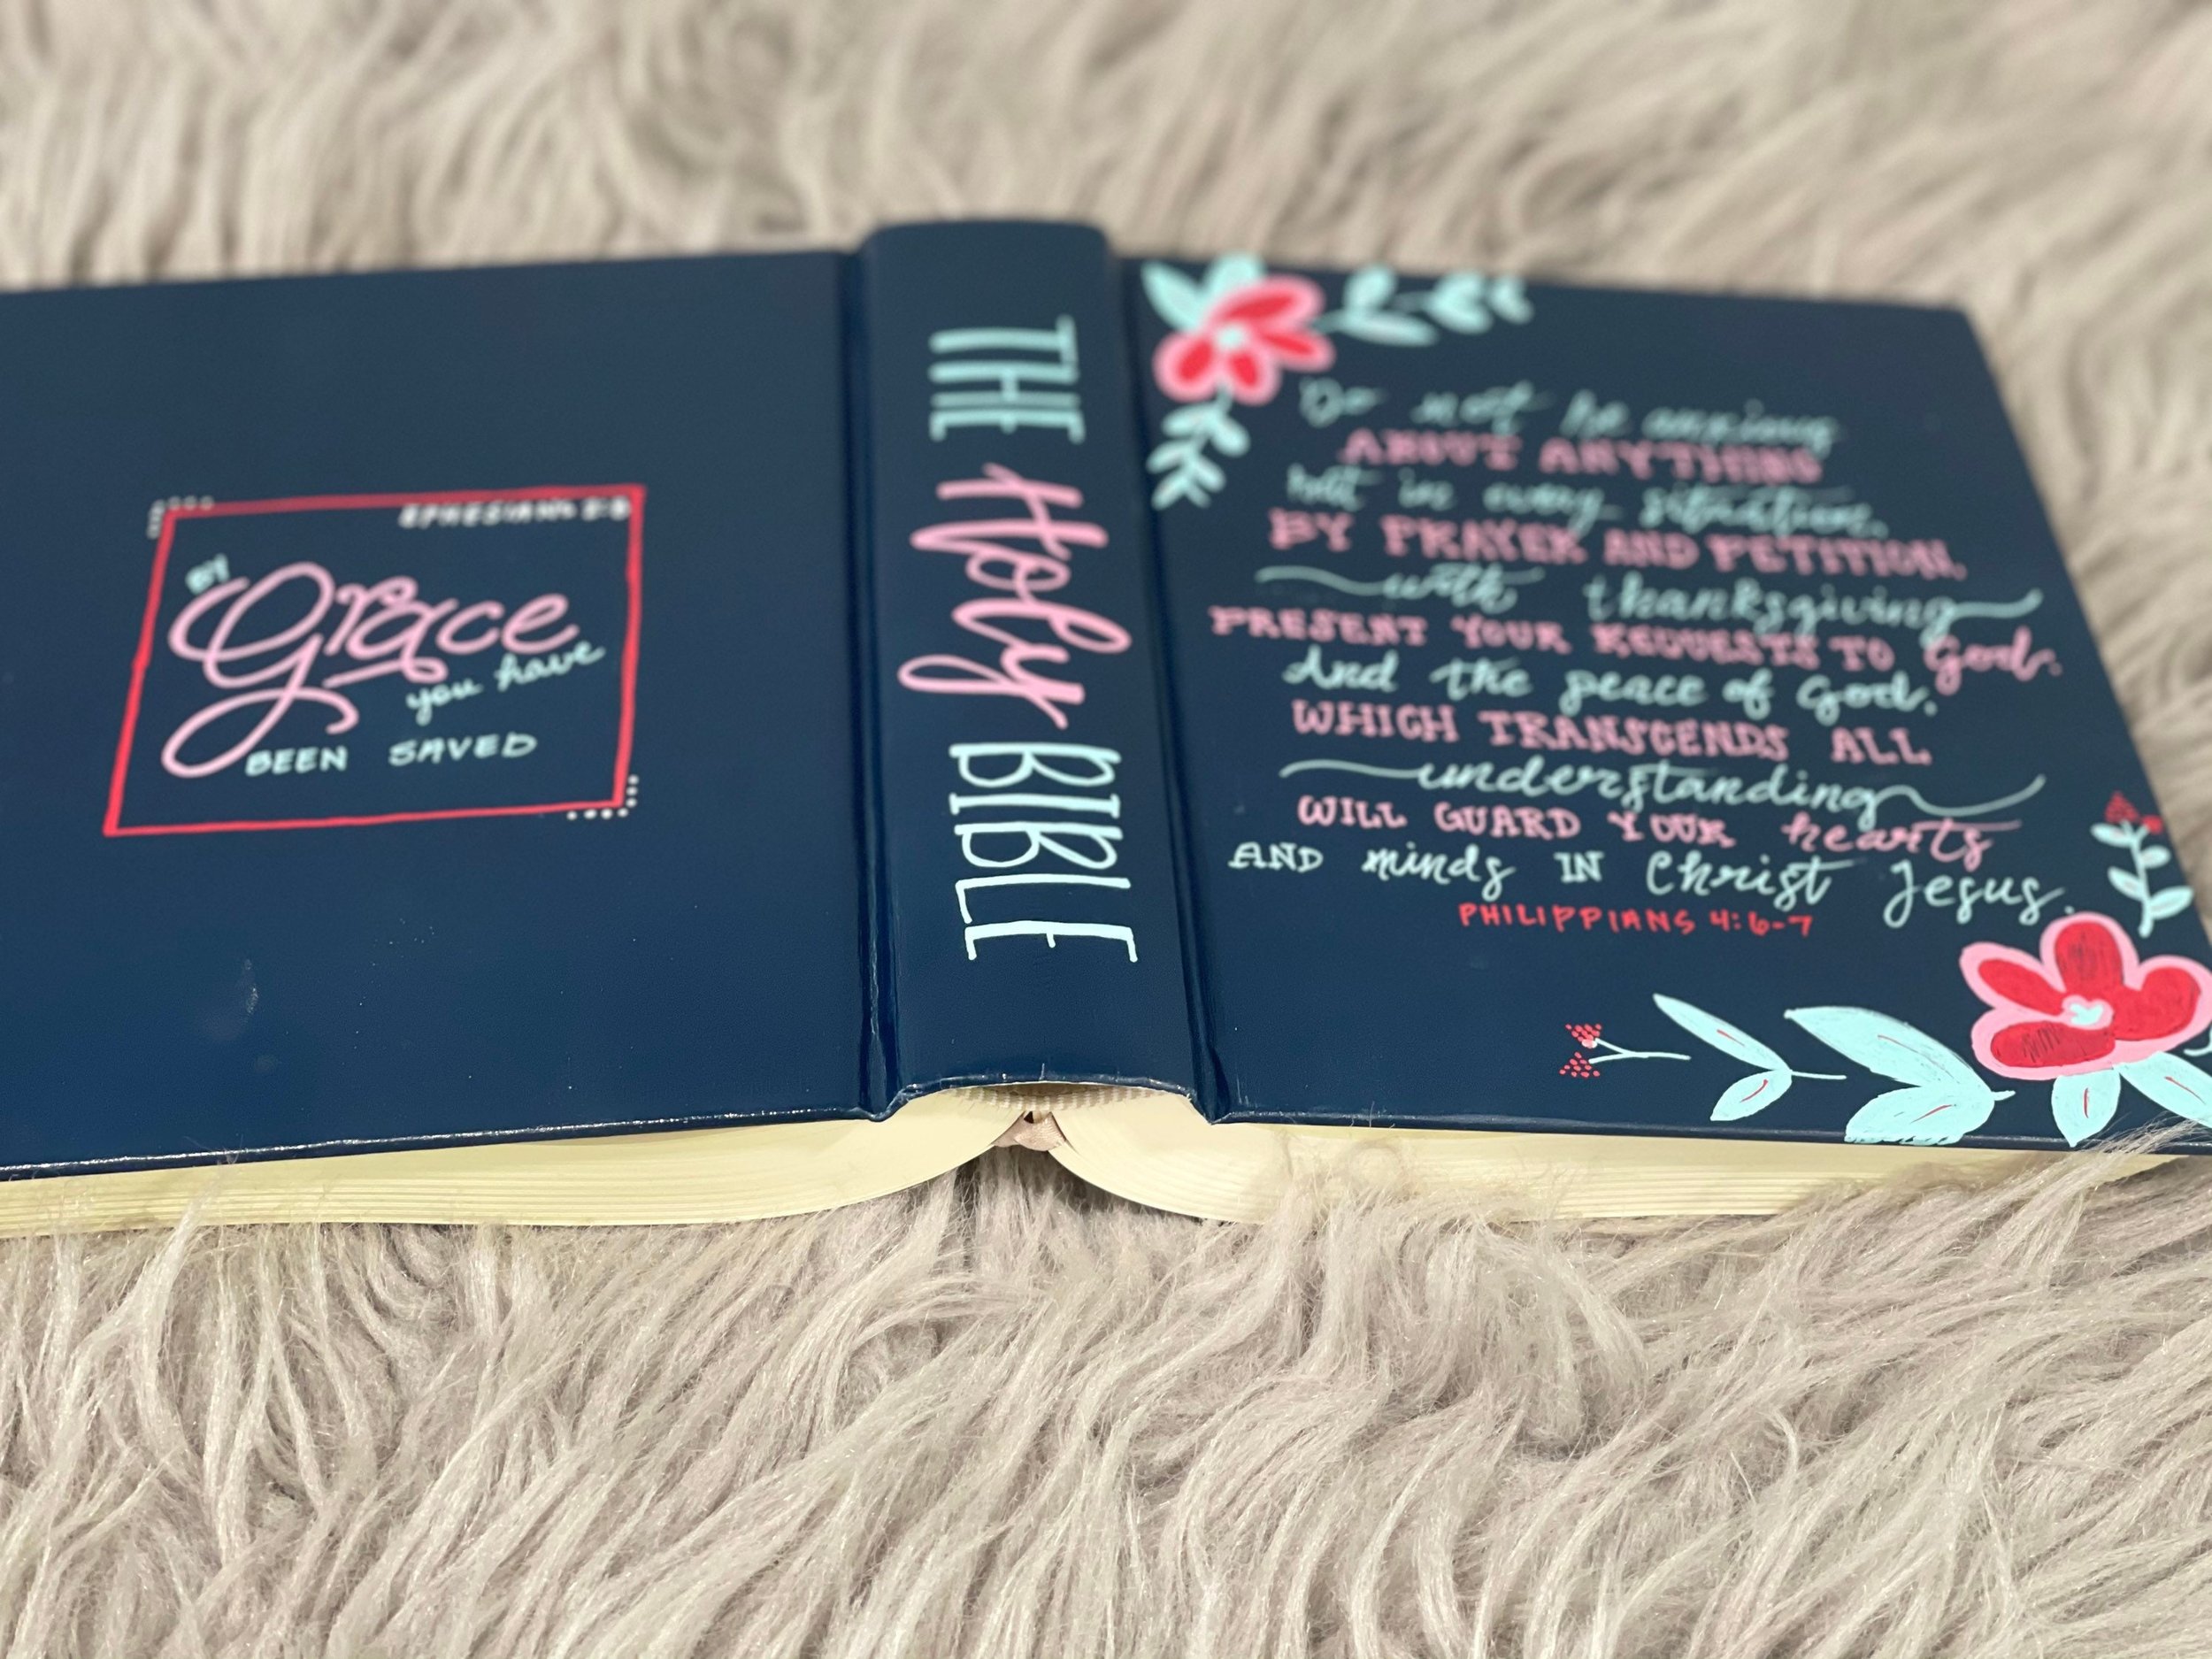 EPHESIANS 2:8
BY
Grace
you have
BEEN SAVED
THE Holy BIBLE
Do not be anxious
ABOUT ANYTHING
but in every situation,
BY PRAYER AND PETITION,
with thanksgiving
PRESENT YOUR REQUESTS TO God.
And the peace of God,
WHICH TRANSCENDS ALL
understanding
WILL GUARD YOUR hearts
AND minds IN Christ Jesus.
PHILIPPIANS 4:6-7